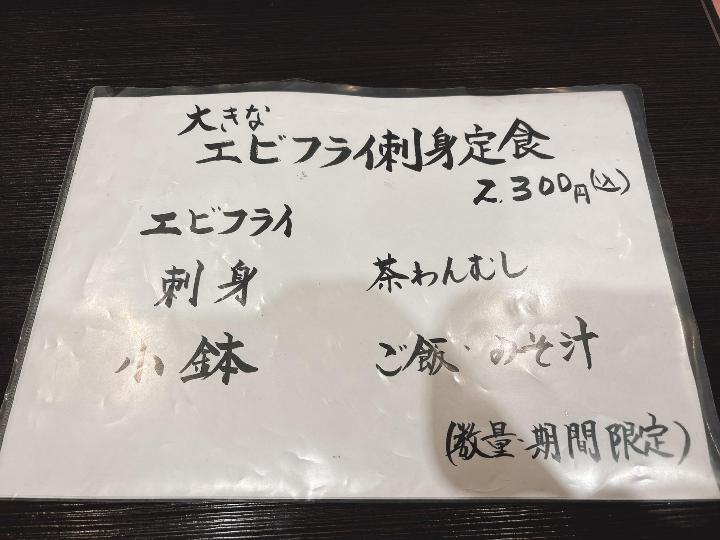 大きな
エビフライ刺身定食
2,300円(込)
エビフライ
刺身
茶わんむし
小鉢
ご飯・みそ汁
(数量・期間限定)